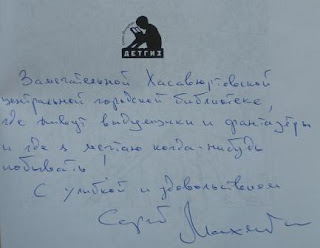 ДЕТГИЗ
Замечательной Хасавюртовской
центральной городской библиотеке,
где живут выдумщики и фантазёры
и где я мечтаю когда-нибудь
побывать!
С улыбкой и удовольствием
Сергей